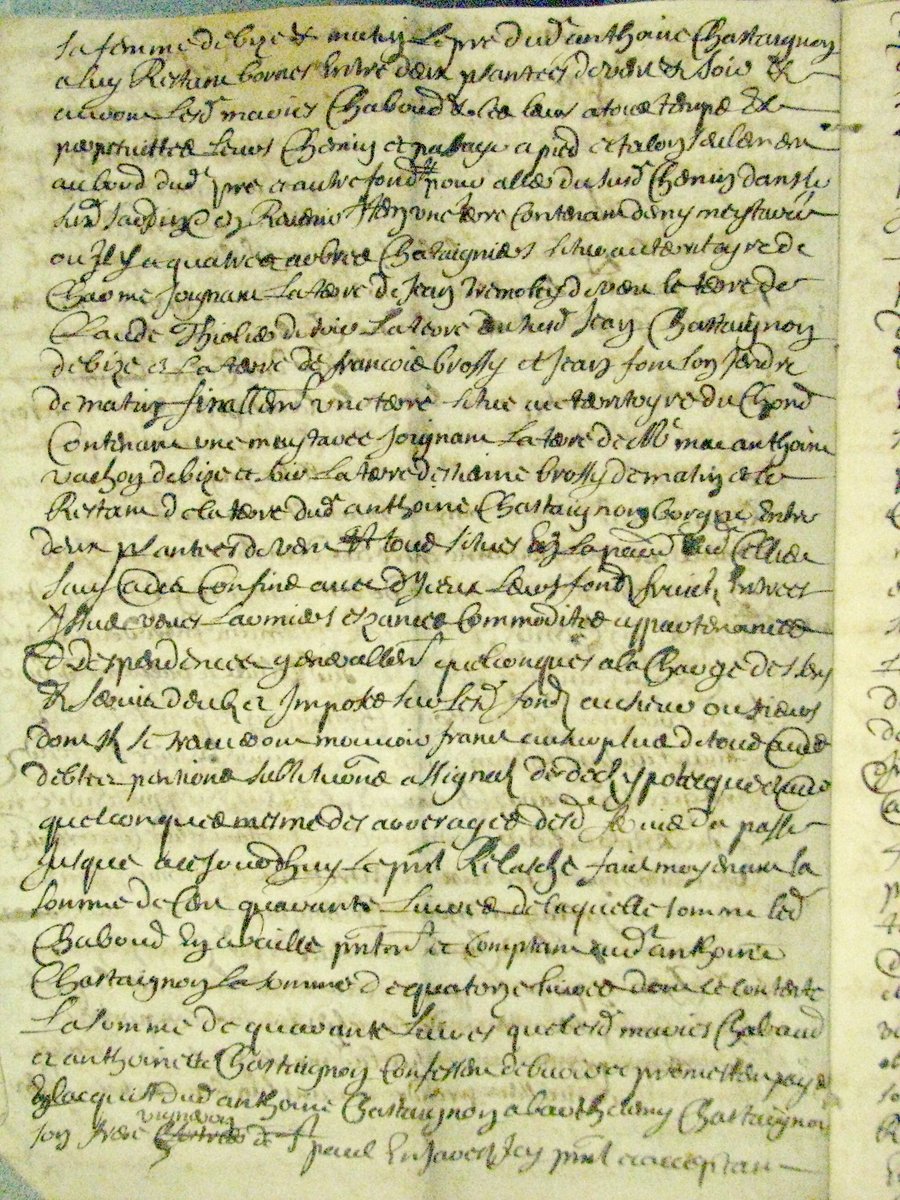 sa femme de bize & matin Le pre dud anthoine Chastaignon
a luy Restant bornes Entre deux plantees de vent & soir &
auront Lesd maries Chaboud & les leurs a tous temps &
perpetuittee Leurs Chemin et passage a pied et talon seulement
au bord dud pre et autre fond pour aller du susd Chemin dans le
susd Revenir Item une terre Contenant demy meytaree
ou Il y a quatre arbres Chataigniers situe au territoyre de
Charme Joignant La terre de Jean de vent le terre de
Claude Thiolier de soir La terre dud Jean Chastaignon
de bize et La terre de francois brossy et Jean son gendre
de matin finallemt une terre situe au territoyre du Chond
Contenant une meytaree Joignant La terre de Mr me anthoine
vachon de bize et soir La terre destienne brossy de matin et le
Restant de la terre dud anthoine Chastaignon borgne Entre
deux plantees de vent & tous situes En La parr dud Cellieu
sauf Autres Confins avec d'yceux Leurs fondz fruictz Entrees
Issues vues Larmiers esgances Commodites appartenances
& Despendences generallemt quelconques a la Charge des cens
& servis deubz et Imposes sur lesd fondz au sieur ou sieurs
dont Ilz se treuveront mouvoir franc au surplus de tous autres
debtes pentions substituons assignat de dot ypotecque
quelconques mesme des arrerages desd servis du passe
Jusque a ce Jourdhuy Le pnt Relasche faict moyenant la
somme de Cent quarante Livres de laquelle somme led
Chaboud En a baille pntemt et Comptant aud anthoine
Chastaignon La somme de quatorze Livres dont se contente
La somme de quarante Livres que lesd maries Chaboud
et anthoinette Chastaignon Confessent debvoir et promettent paye
En lacquit dud anthoine Chastaignon a barthelemy Chastaignon
son frere vigneron de St
paul En Jarest Icy pnt et acceptant